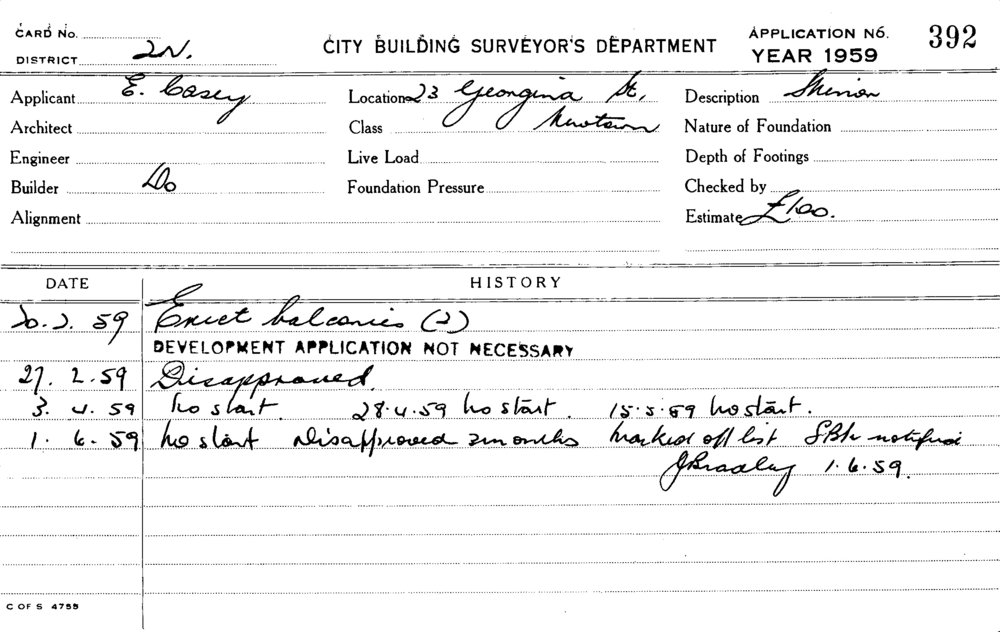 CARD No. CITY BUILDING SURVEYOR'S DEPARTMENT APPLICATION No. 392
DISTRICT 2N. YEAR 1959
Applicant E. Casey Location 23 Georgina St, Description
Architect Class Newtown Nature of Foundation
Engineer Live Load Depth of Footings
Builder Do Foundation Pressure Checked by
Alignment Estimate £100.
DATE HISTORY
20.2.59 Erect balconies (2)
DEVELOPMENT APPLICATION NOT NECESSARY
27.2.59 Disapproved.
3.4.59 No start. 28.4.59 No start. 15.5.59 No start.
1.6.59 No start Disapproved 3 months Marked off list notified
JBradley 1.6.59.
C OF S 4755